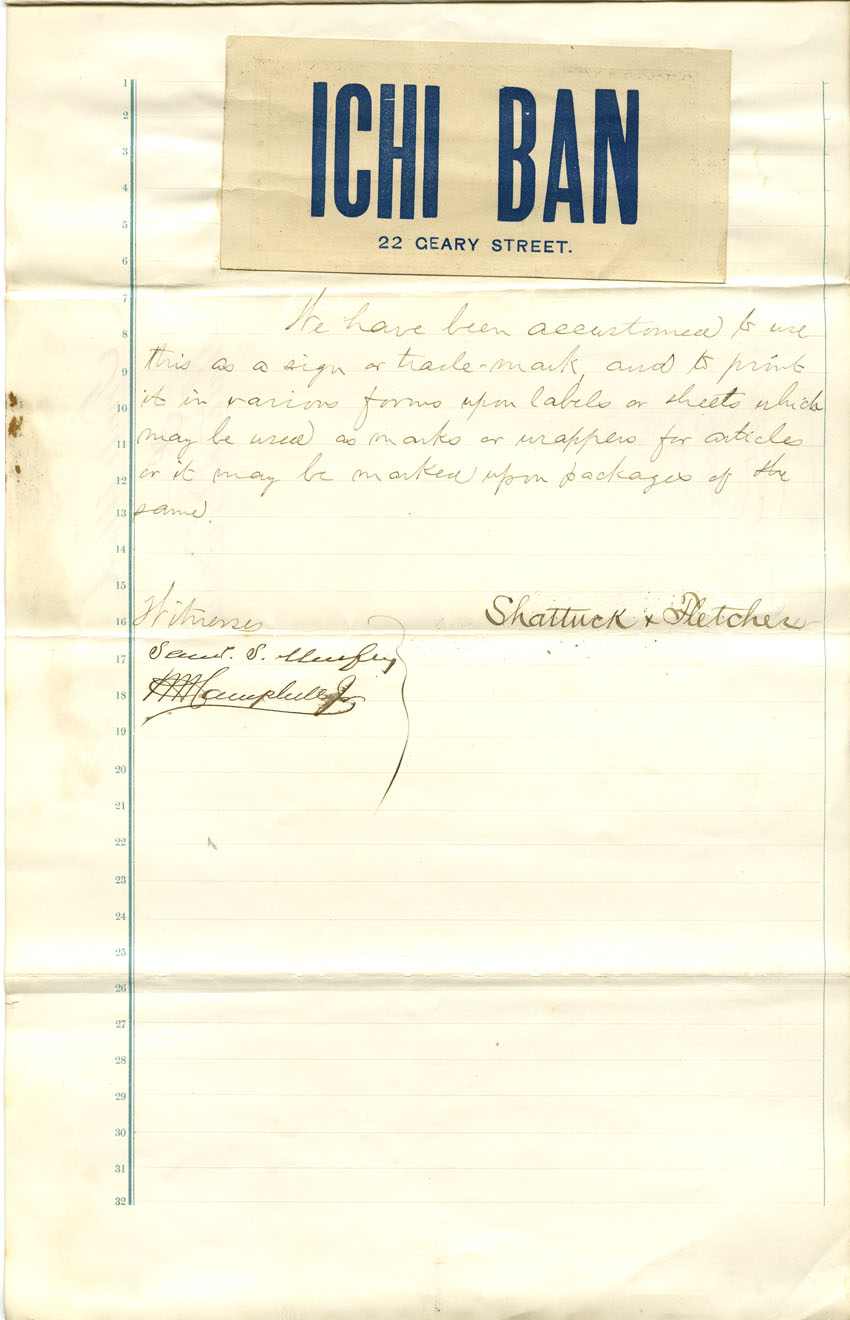 ICHI BAN
22 GEARY STREET.
1
2
3
4
5
6
7
We have been accustomed to use
8
this as a sign or trade-mark, and to print
9
it in various forms upon labels or sheets which
10
may be used as marks or wrappers for articles
11
or it may be marked upon packages of the
12
same.
13
14
15
Witnesses
Shattuck & Fletcher
16
Saml. S. Murfey
17
Campbell Jr
18
19
20
21
22
23
24
25
26
27
28
29
30
31
32